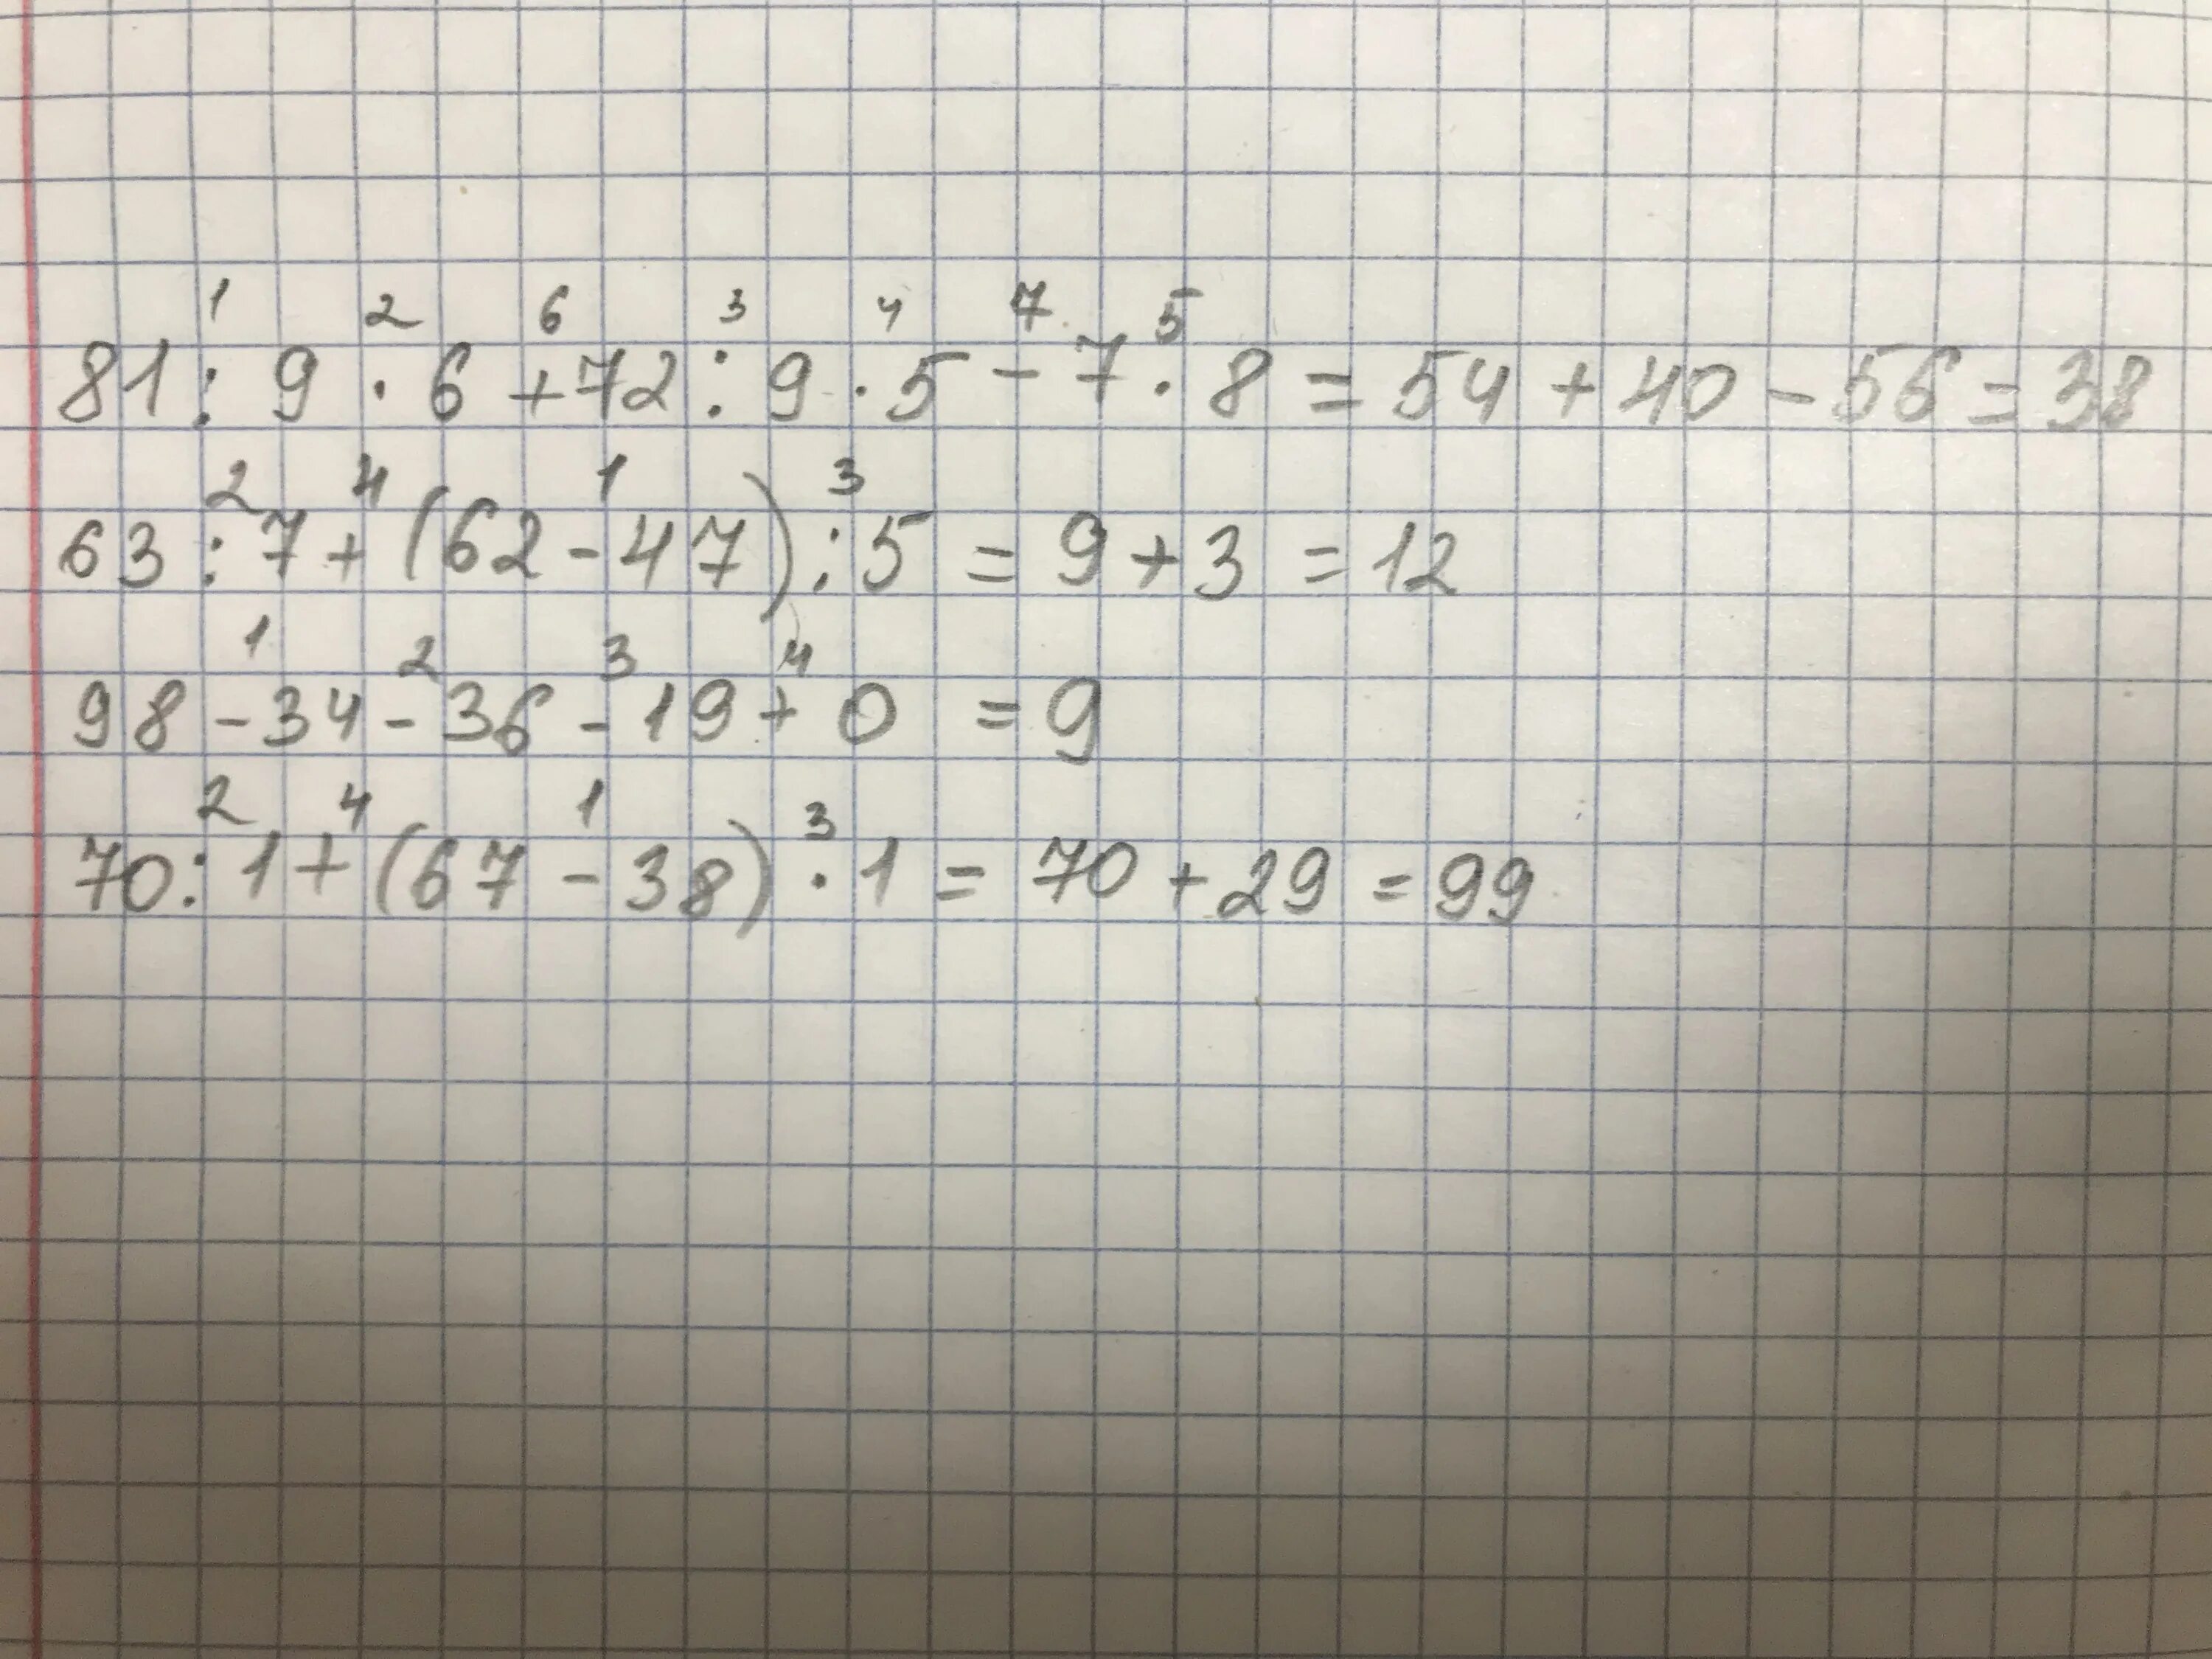 1 2 6 3 4 7 5
81 : 9 · 6 + 72 : 9 · 5 - 7 · 8 = 54 + 40 - 56 = 38
2 4 1 3
63 : 7 + (62 - 47) : 5 = 9 + 3 = 12
1 2 3 4
98 - 34 - 36 - 19 + 0 = 9
2 4 1 3
70 : 1 + (67 - 38) · 1 = 70 + 29 = 99